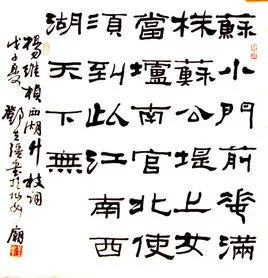 蘇小門前花滿
株蘇公堤上女
當壚南官北使
須到此江南西
湖天下無
楊維楨西湖竹枝詞
戊子夏鄧書於